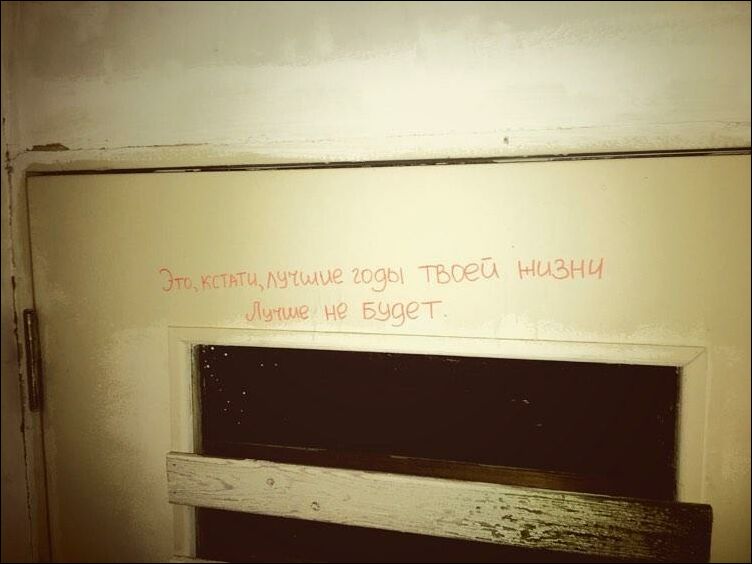 Это, кстати, лучшие годы твоей жизни
Лучше не будет.